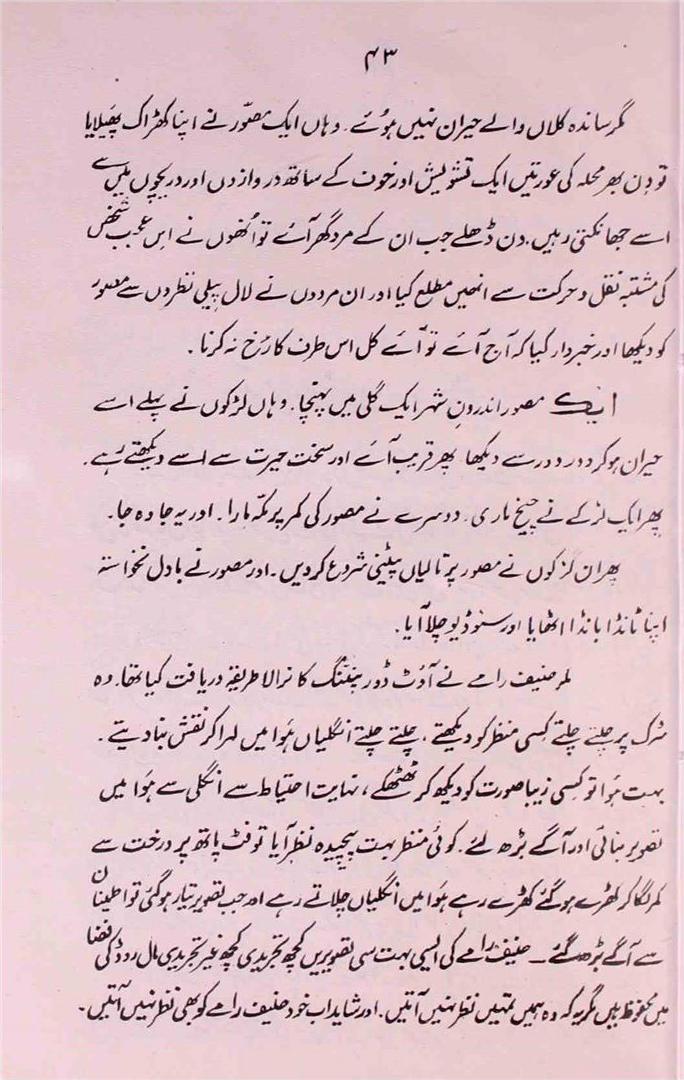 ۴۳
مگر ساندہ کلاں والے حیران نہیں ہوئے۔ وہاں ایک مصوّر نے اپنا کھڑاک پھیلایا
تو دن بھر محلہ کی عورتیں ایک تشویش اور خوف کے ساتھ دروازوں اور دریچوں میں سے
اسے جھانکتی رہیں۔ دن ڈھلے جب ان کے مرد گھر آئے تو اُنھوں نے اس عجب شخص
کی مشتبہ نقل و حرکت سے انھیں مطلع کیا اور ان مردوں نے لال پیلی نظروں سے مصور
کو دیکھا اور خبردار کیا کہ آج آئے تو آئے کل اس طرف کا رُخ نہ کرنا۔
ایک مصور اندرونِ شہر ایک گلی میں پہنچا۔ وہاں لڑکوں نے پہلے اسے
حیران ہوکر دور دور سے دیکھا پھر قریب آئے اور سخت حیرت سے اسے دیکھتے رہے۔
پھر ایک لڑکے نے چیخ ماری۔ دوسرے نے مصور کی کمر پر مکّہ مارا۔ اور یہ جا وہ جا۔
پھر ان لڑکوں نے مصور پر تالیاں پیٹنی شروع کردیں۔ اور مصور نے بادل نخواستہ
اپنا ٹانڈا بانڈا اٹھایا اور سٹوڈیو چلا آیا۔
مگر حنیف رامے نے آؤٹ ڈور پینٹنگ کا نرالا طریقہ دریافت کیا تھا۔ وہ
سڑک پر چلتے چلتے کسی منظر کو دیکھتے، چلتے چلتے انگلیاں ہَوا میں لہرا کر نقش بنا دیتے۔
بہت ہُوا تو کسی زیبا صورت کو دیکھ کر ٹھٹھکے، نہایت احتیاط سے انگلی سے ہوا میں
تصویر بنائی اور آگے بڑھ لئے۔ کوئی منظر بہت پیچیدہ نظر آیا تو فٹ پاتھ پر درخت سے
کمر لگا کر کھڑے ہوگئے کھڑے رہے ہوا میں انگلیاں چلاتے رہے اور جب تصویر تیار ہوگئی تو اطینان
سے آگے بڑھ گئے ۔ حنیف رامے کی ایسی بہت سی تصویریں کچھ تجریدی کچھ غیر تجریدی مال روڈ کی فضا
میں محفوظ ہیں مگر یہ کہ وہ ہمیں تمہیں نظر نہیں آتیں۔ اور شاید اب خود حنیف رامے کو بھی نظر نہیں آتیں۔